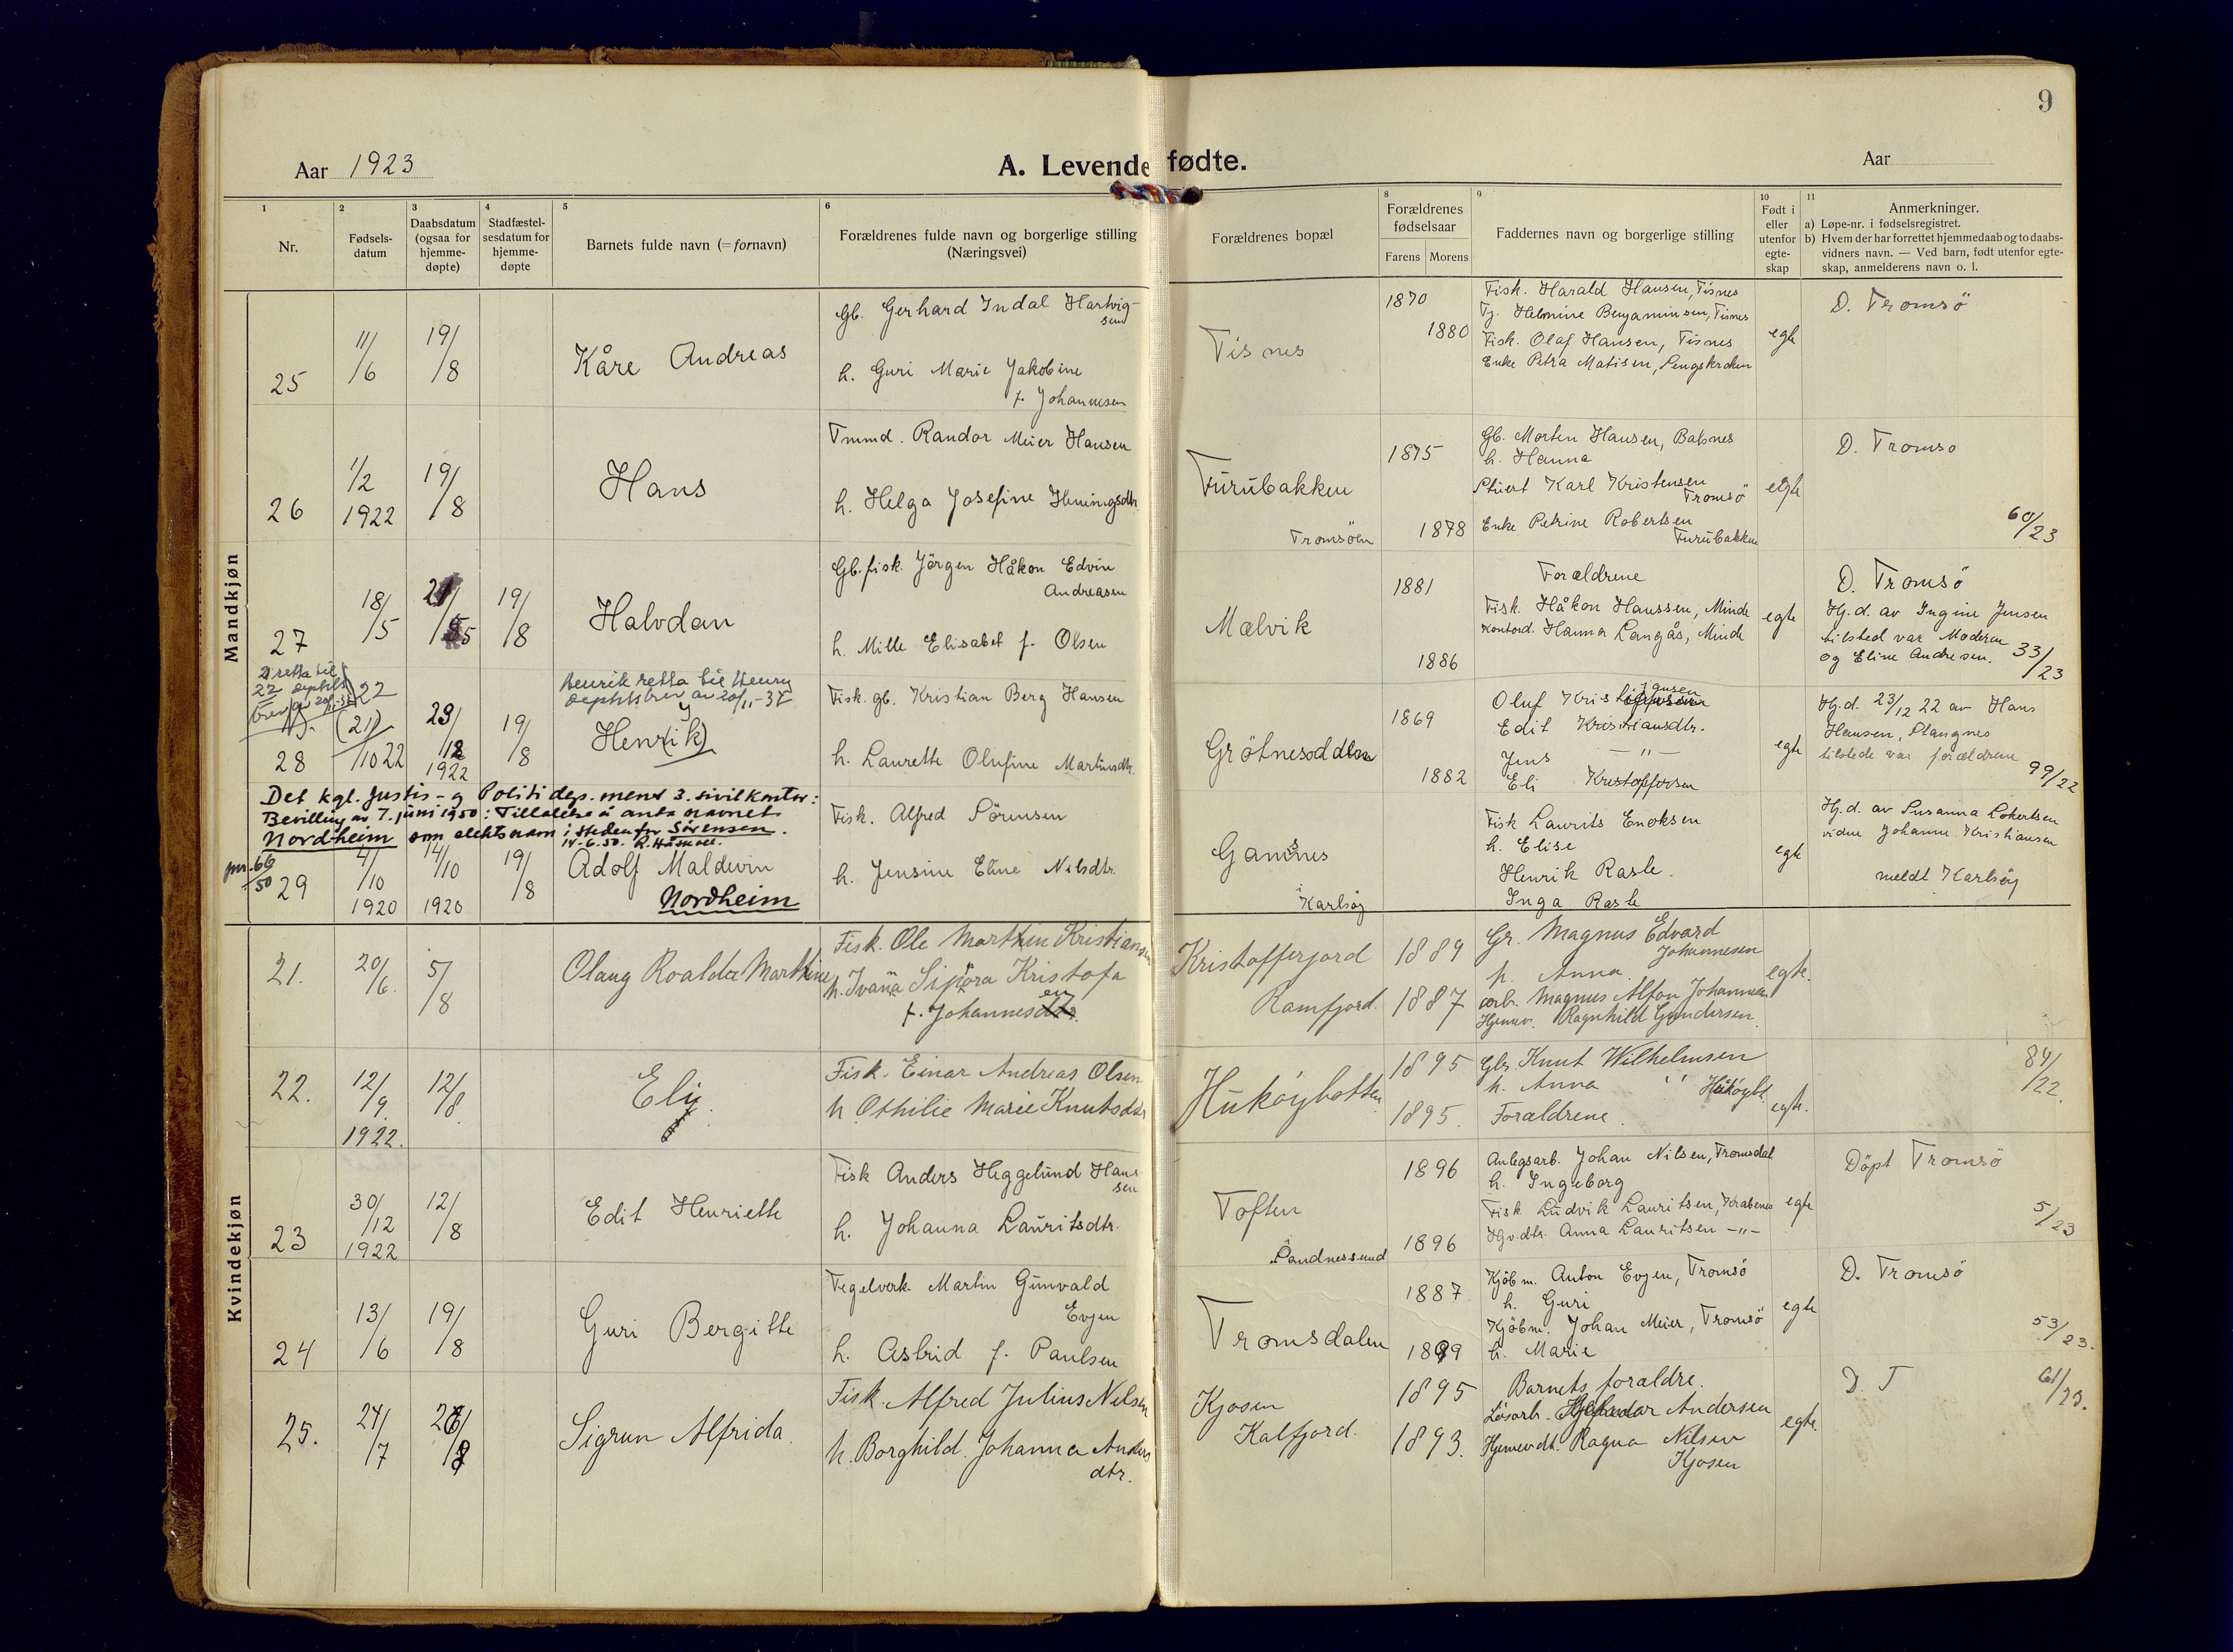 9
Aar 1923
A. Levende fødte.
Aar
1
2
3
4
5
6
8
9
10
11
Nr.
Fødsels-
datum
Daabsdatum
(ogsaa for
hjemme-
døpte)
Stadfæstel-
sesdatum for
hjemme-
døpte
Barnets fulde navn (= fornavn)
Forældrenes fulde navn og borgerlige stilling
(Næringsvei)
Forældrenes bopæl
Forældrenes
fødselsaar
Farens Morens
Faddernes navn og borgerlige stilling
Født i
eller
utenfor
egte-
skap
Anmerkninger.
a) Løpe-nr. i fødselsregistret.
b) Hvem der har forrettet hjemmedaab og to daabs-
vidners navn. — Ved barn, født utenfor egte-
skap, anmelderens navn o. l.
Mandkjøn
25
11/6
19/8
Kåre Andreas
Gb. Gerhard Indal Hartvig-
sen
h. Guri Marie Jakobine
f. Johannesen
Tisnes
1870
1880
Fisk. Harald Hansen, Tisnes
Tj. Helmine Benjaminsen, Tisnes
Fisk. Olaf Hansen, Tisnes
Enke Petra Matisen, Lengskroken
egte
D. Tromsö
26
1/2
1922
19/8
Hans
Tmmd. Randor Meier Hansen
h. Helga Josefine Heningsdtr.
Furubakken
Tromsöen
1875
1878
Gb. Morten Hansen, Balsnes
h. Hanna
Stuert Karl Kristensen
Tromsö
Enke Petrine Robertsen
Furubakken
egte
D. Tromsö
60/23
27
18/5
19/8
Halvdan
Gb. fisk. Jörgen Håkon Edvin
Andreasen
h. Mille Elisabet f. Olsen
Mælvik
1881
1886
Forældrene
Fisk. Håkon Hanssen, Minde
Kontord. Hanna Langås, Minde
egte
D. Tromsö
Hj. d. av Ingine Jensen
tilsted var Moderen
og Eline Andresen.
33/23
21 retta til
22
brev av 20/11-37
22
28
(21)
/10 22
1922
19/8
Henrik retta til Henry
brev av 20/11-37
y
Henr(ik)
Fisk. gb. Kristian Berg Hansen
h. Laurette Olufine Martinsdtr.
Grötnesodden
1869
1882
Oluf Kristiansen
Edit Kristiansdtr.
Jens — " —
Eli Kristoffersen
egte
Hj. d. 23/12 22 av Hans
Hansen, Stangnes
tilstede var forældrene
99/22
Det kgl. Justis- og Politidep.ment 3. sivilkontor:
Bevilling av 7. juni 1950: Tillatelse å anta navnet
Nordheim som slektsnavn i steden for Sörensen.
14-6.50.
66/50
29
4/10
1920
14/10
1920
19/8
Adolf Maldevin
Nordheim
Fisk. Alfred Sörensen
h. Jensine Eline Nilsdtr.
Gamnes
i Karlsöy
Fisk Laurits Enoksen
h. Elise
Henrik Rasle.
Inga Rasle
egte
Hj. d. av Susanna Lokertsen
viden Johanne Kristiansen
meldt Karlsöy
Kvindekjøn
21.
20/6.
5/8
Olaug Roalda Marthine
Fisk. Ole Marthin Kristiansen
h. Ivana Sipora Kristofa
f. Johannesen
Kristofferjord
Ramfjord.
1889
1887
Gr. Magnus Edvard
Johannesen
h. Anna.
arb. Magnus Alfon Johannesen
Hjemmev. Ragnhild Gundersen.
egte.
22.
12/9.
1922.
12/8.
Eli.
Fisk. Einar Andreas Olsen
h Othilie Marie Knutsdtr
Hukøybotten
1895
1895.
Gbr. Knut Wilhelmsen
h. Anna " Hukøybt.
Forældrene.
egte.
84/22.
23
30/12
1922
12/8
Edit Henriette
Fisk Anders Heggelund Hans
sen
h. Johanna Lauritsdtr.
Toften
i Sandnessund
1896
1896
Anlegsarb. Johan Nilsen, Tromsdal
h. Ingeborg
Fisk Ludvik Lauritsen, Krabenes
Hjv.dtr. Anna Lauritsen —"—
egte
Döpt Tromsö
5/23
24
13/6
19/8
Guri Bergitte
Tegelverk. Martin Gunvald
Evjen
h. Astrid f. Paulsen
Tromsdalen
1887
1899
Kjöbm. Anton Evjen, Tromsö
h. Guri
Kjöbm. Johan Meier, Tromsö
h. Marie
egte
D. Tromsö
53/23.
25.
24/7
26/8
Sigrun Alfrida.
Fisk. Alfred Julius Nilsen
h. Borghild Johanna Anders
dtr.
Kjosen
Kalfjord.
1895
1893.
Barnets foraldre.
Løsarb. Andersen
Hjemmevdt. Ragna Nilsen
Kjosen
egte.
D. T
61/23.